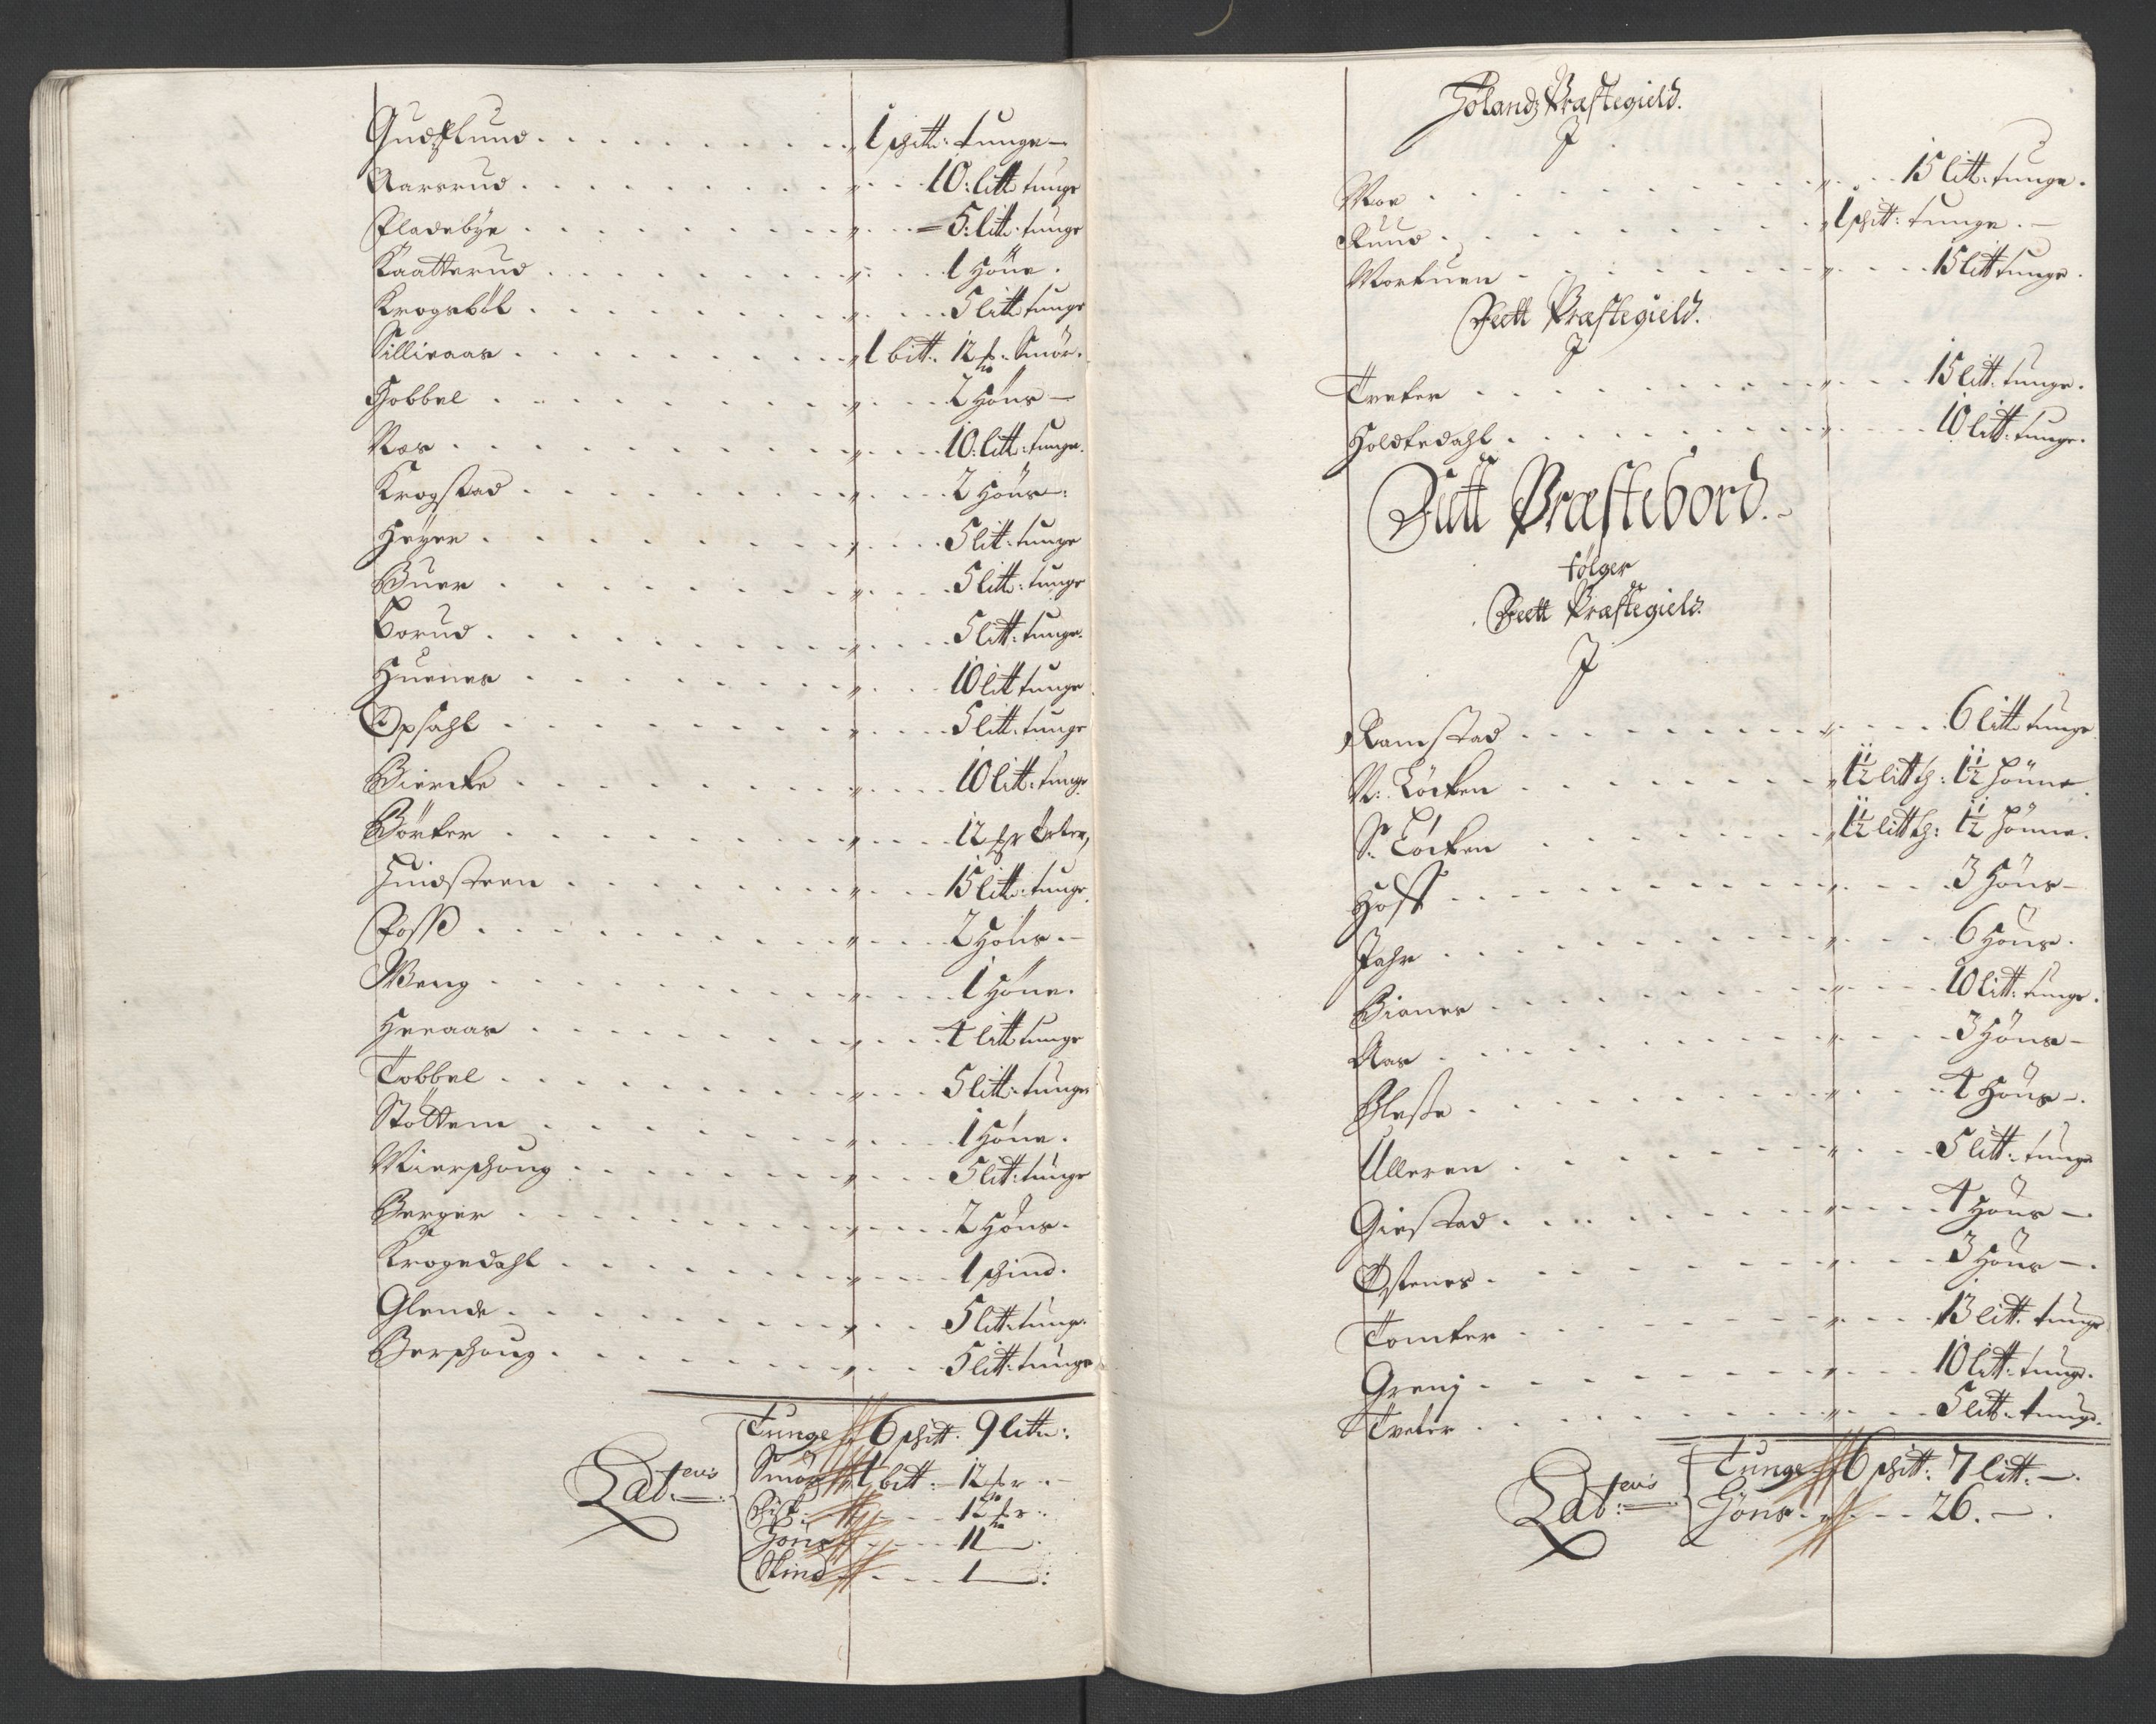 Gudslund . . . . . . . . . „ 1 schitt: tunge —
Aarsrud . . . . . . . . . „ . . . 10: litt: tunge
Fladebye . . . . . . . . . „ . . . 5: litt: tunge
Kaatterud . . . . . . . . . „ . . . 1 Höne.
Krogsböl . . . . . . . . . „ . . . 5 litt tunge
Silliraas . . . . . . . . . „ 1 bitt: 12 Smör.
Hobbel . . . . . . . . . „ . . . 2 Höns —
Næs . . . . . . . . . „ . . . 10: litt: tunge.
Krogstad . . . . . . . . . „ . . . 2 Höns —:
Heyer . . . . . . . . . „ . . . 5 litt: tunge
Buer . . . . . . . . . „ . . . 5 litt: tunge
Borud . . . . . . . . . „ . . . 5 litt: tunge.
Huenes . . . . . . . . . „ . . . 10 litt tunge
Opsahl . . . . . . . . . „ . . . 5 litt: tunge
Biercke . . . . . . . . . „ . . . 10 litt: tunge
Börker . . . . . . . . . „ . . . 12
Huidsteen . . . . . . . . . „ . . . 15 litt: tunge
Foss . . . . . . . . . „ . . . 2 Höns. —
Weng . . . . . . . . . „ . . . 1 Höne.
Heraas . . . . . . . . . „ . . . 4 litt tunge
Tobbel . . . . . . . . . „ . . . 5 litt: tunge
Stöttem . . . . . . . . . „ . . . 1 Höne.
Mierschoug . . . . . . . . . „ . . . 5 litt: tunge
Berger . . . . . . . . . „ . . . 2 Höns.
Krogedahl . . . . . . . . . „ . . . 1 schind.
Glende . . . . . . . . . „ . . . 5 litt: tunge.
Berschoug . . . . . . . . . „ . . . 5 litt: tunge
Lat:eris
Tunge 6 schitt. 9 litt:
Smör 1 bitt: — 12
Fisk: . . . 12
Höns . . . 11 —
Skind . . . 1 —:
Hölands Præstegield.
J
Moe . . . . . . . . . „ . . . 15 litt: tunge.
Ruud . . . . . . . . . „ 1 schitt: tunge. —
Morkuen . . . . . . . . . „ . . . 15 litt tunge.
Feett Præstegield.
J
Treter . . . . . . . . . „ . . . 15 litt: tunge.
Holdtedahl . . . . . . . . . „ . . . 10 litt: tunge.
Feett Præstebord. —
følger
Feett Præstegield.
J
Ramstad . . . . . . . . . „ . . . 6 litt tunge
N: Löcken . . . . . . . . . „ 1½ litt tg: 1½ Hönne.
S: Löcken . . . . . . . . . „ 1½ litt tg: 1½ Hönne.
Hoff . . . . . . . . . „ . . . 3 Höns —
Jahr . . . . . . . . . „ . . . 6 Höns.
Bienes . . . . . . . . . „ . . . 10 litt: tunge.
Aas . . . . . . . . . „ . . . 3 Höns —
Glesse . . . . . . . . . „ . . . 4 Höns —.
Ulleren . . . . . . . . . „ . . . 5 litt: tunge
Giestad . . . . . . . . . „ . . . 4 Höns —.
Östenes . . . . . . . . . „ . . . 3 Höns —.
Tomter . . . . . . . . . „ . . . 13 litt. tunge
Grenj . . . . . . . . . „ . . . 10 litt: tunge.
Tveter . . . . . . . . . „ . . . 5 litt: tunge.
Lat:eris
Tunge 6 schitt: 7 litt: —.
Höns . . . 26. —.